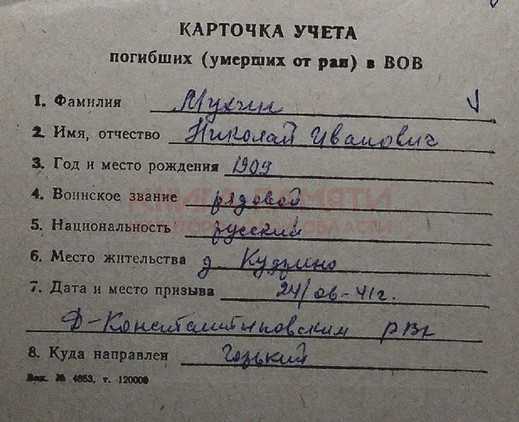 КАРТОЧКА УЧЕТА
погибших (умерших от ран) в ВОВ
1. Фамилия Мухин
2. Имя, отчество Николай Иванович
3. Год и место рождения 1909
4. Воинское звание рядовой
КНИГА ПАМЯТИ
5. Национальность русский
ОБЛАСТИ
6. Место жительства д. Кудрино
7. Дата и место призыва 24/06-41г.
Д-Константиновским рвк
8. Куда направлен Горький
Зак. № 4853, т. 120000